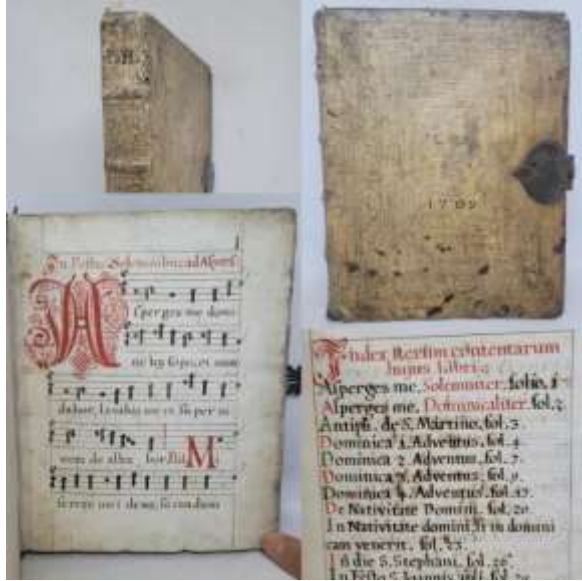 1709
1
In Festis Solemnibus ad Aspers
Asperges me domi
ne hyssopo, et mun
dabor, lavabis me et super ni
vem de alba bor. Ps. M
serere mei deus, secundum
Index Rerum contentarum
hujus Libri.
Asperges me, Solemniter. folio. 1
Asperges me, Dominicaliter. fol. 2.
Antiph. de S. Martino, fol. 3.
Dominica 1. Adventus, fol. 4.
Dominica 2. Adventus, fol. 7.
Dominica 3. Adventus, fol. 9.
Dominica 4. Adventus, fol. 17.
De Nativitate Domini, fol. 20.
In Nativitate domini, si in domini
cam venerit, fol. 23.
In die S. Stephani, fol. 26.
In Festo S. Joannis